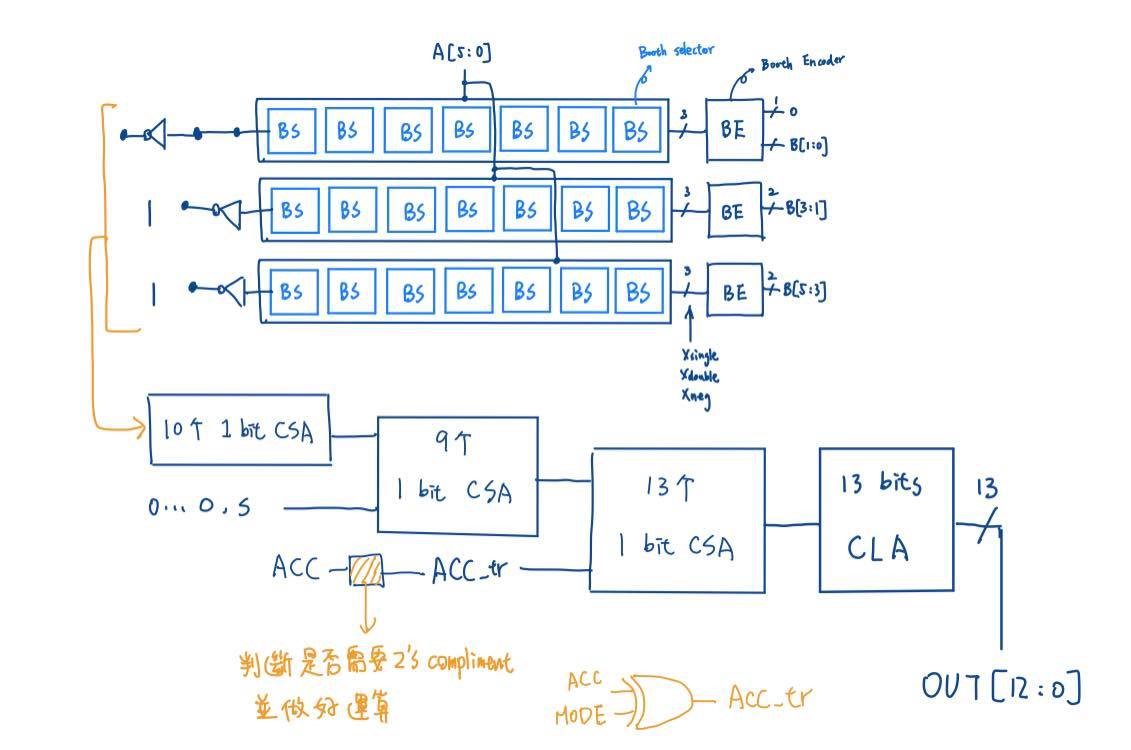 A[5:0]
Booth selector
Booth Encoder
BS BS BS BS BS BS BS
3
BE
1
0
B[1:0]
1
BS BS BS BS BS BS BS
3
BE
2
B[3:1]
1
BS BS BS BS BS BS BS
3
BE
2
B[5:3]
Xsingle
Xdouble
Xneg
10个 1 bit CSA
9个
1 bit CSA
13个
1 bit CSA
13 bits
CLA
13
0...0, S
ACC
ACC_tr
判斷是否需要2's compliment
並做好運算
ACC
MODE
Acc_tr
OUT[12:0]